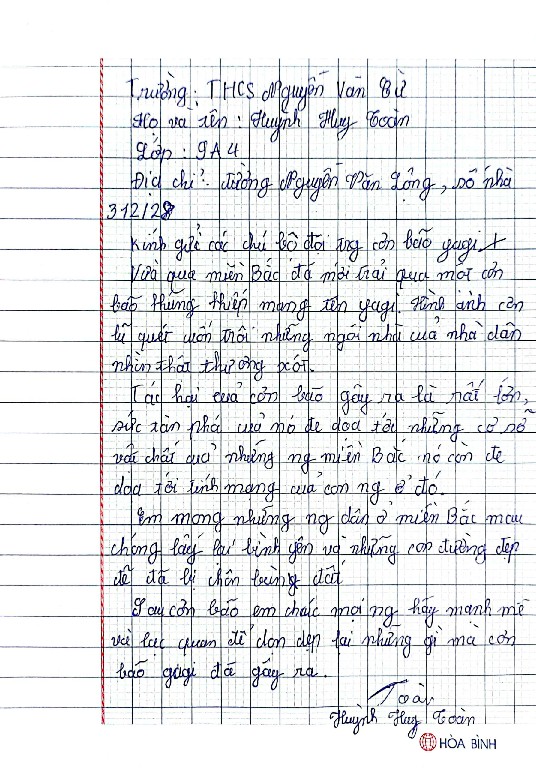 Trường: THCS Nguyễn Văn Từ
Họ và tên: Huỳnh Huy Toàn
Lớp: 9A4
Địa chỉ: đường Nguyễn Văn Lộng, số nhà
312/28
Kính gửi các chú bộ đội trg cơn bão yagi
Vừa qua miền Bắc đã mới trải qua một cơn
bão thững thiếp mang tên yagi. Hình ảnh cơn
lũ quét cuốn trôi những ngôi nhà của nhà dân
nhìn thật thương xót.
Tác hại của cơn bão gây ra là rất lớn,
sức tàn phá của nó đe dọa tới những cơ sở
vật chất của những ng miền Bắc nó còn đe
dọa tới tính mạng của con ng ở đó.
Em mong những ng dân ở miền Bắc mau
chóng lấy lại bình yên và những con đường đẹp
đẽ đã bị chôn bằng đất
Sau cơn bão em chúc mọi ng hãy mạnh mẽ
và lạc quan để dọn dẹp lại những gì mà cơn
bão yagi đã gây ra.
Toàn
Huỳnh Huy Toàn
HÒA BÌNH